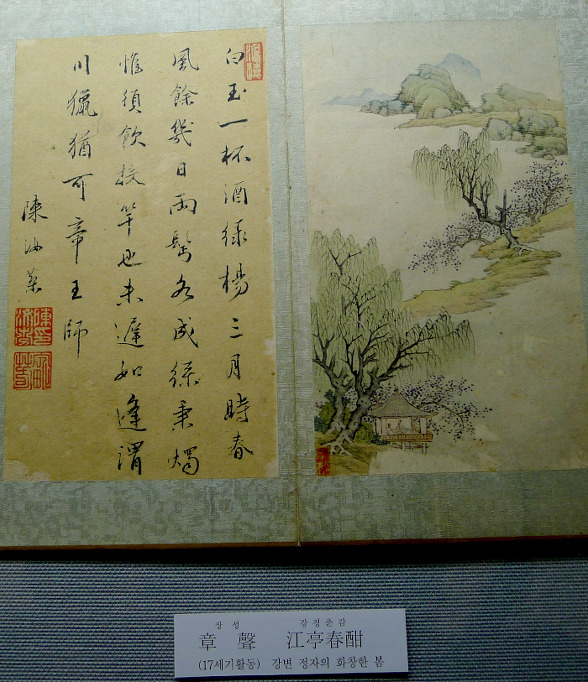 白玉一杯酒綠楊三月時春
風餘幾日兩鬢各成絲秉燭
惟須飲投竿也未遲如逢渭
川獵猶可帝王師
陳
장 성 강정춘감
章 聲 江亭春酣
(17세기활동) 강변 정자의 화창한 봄